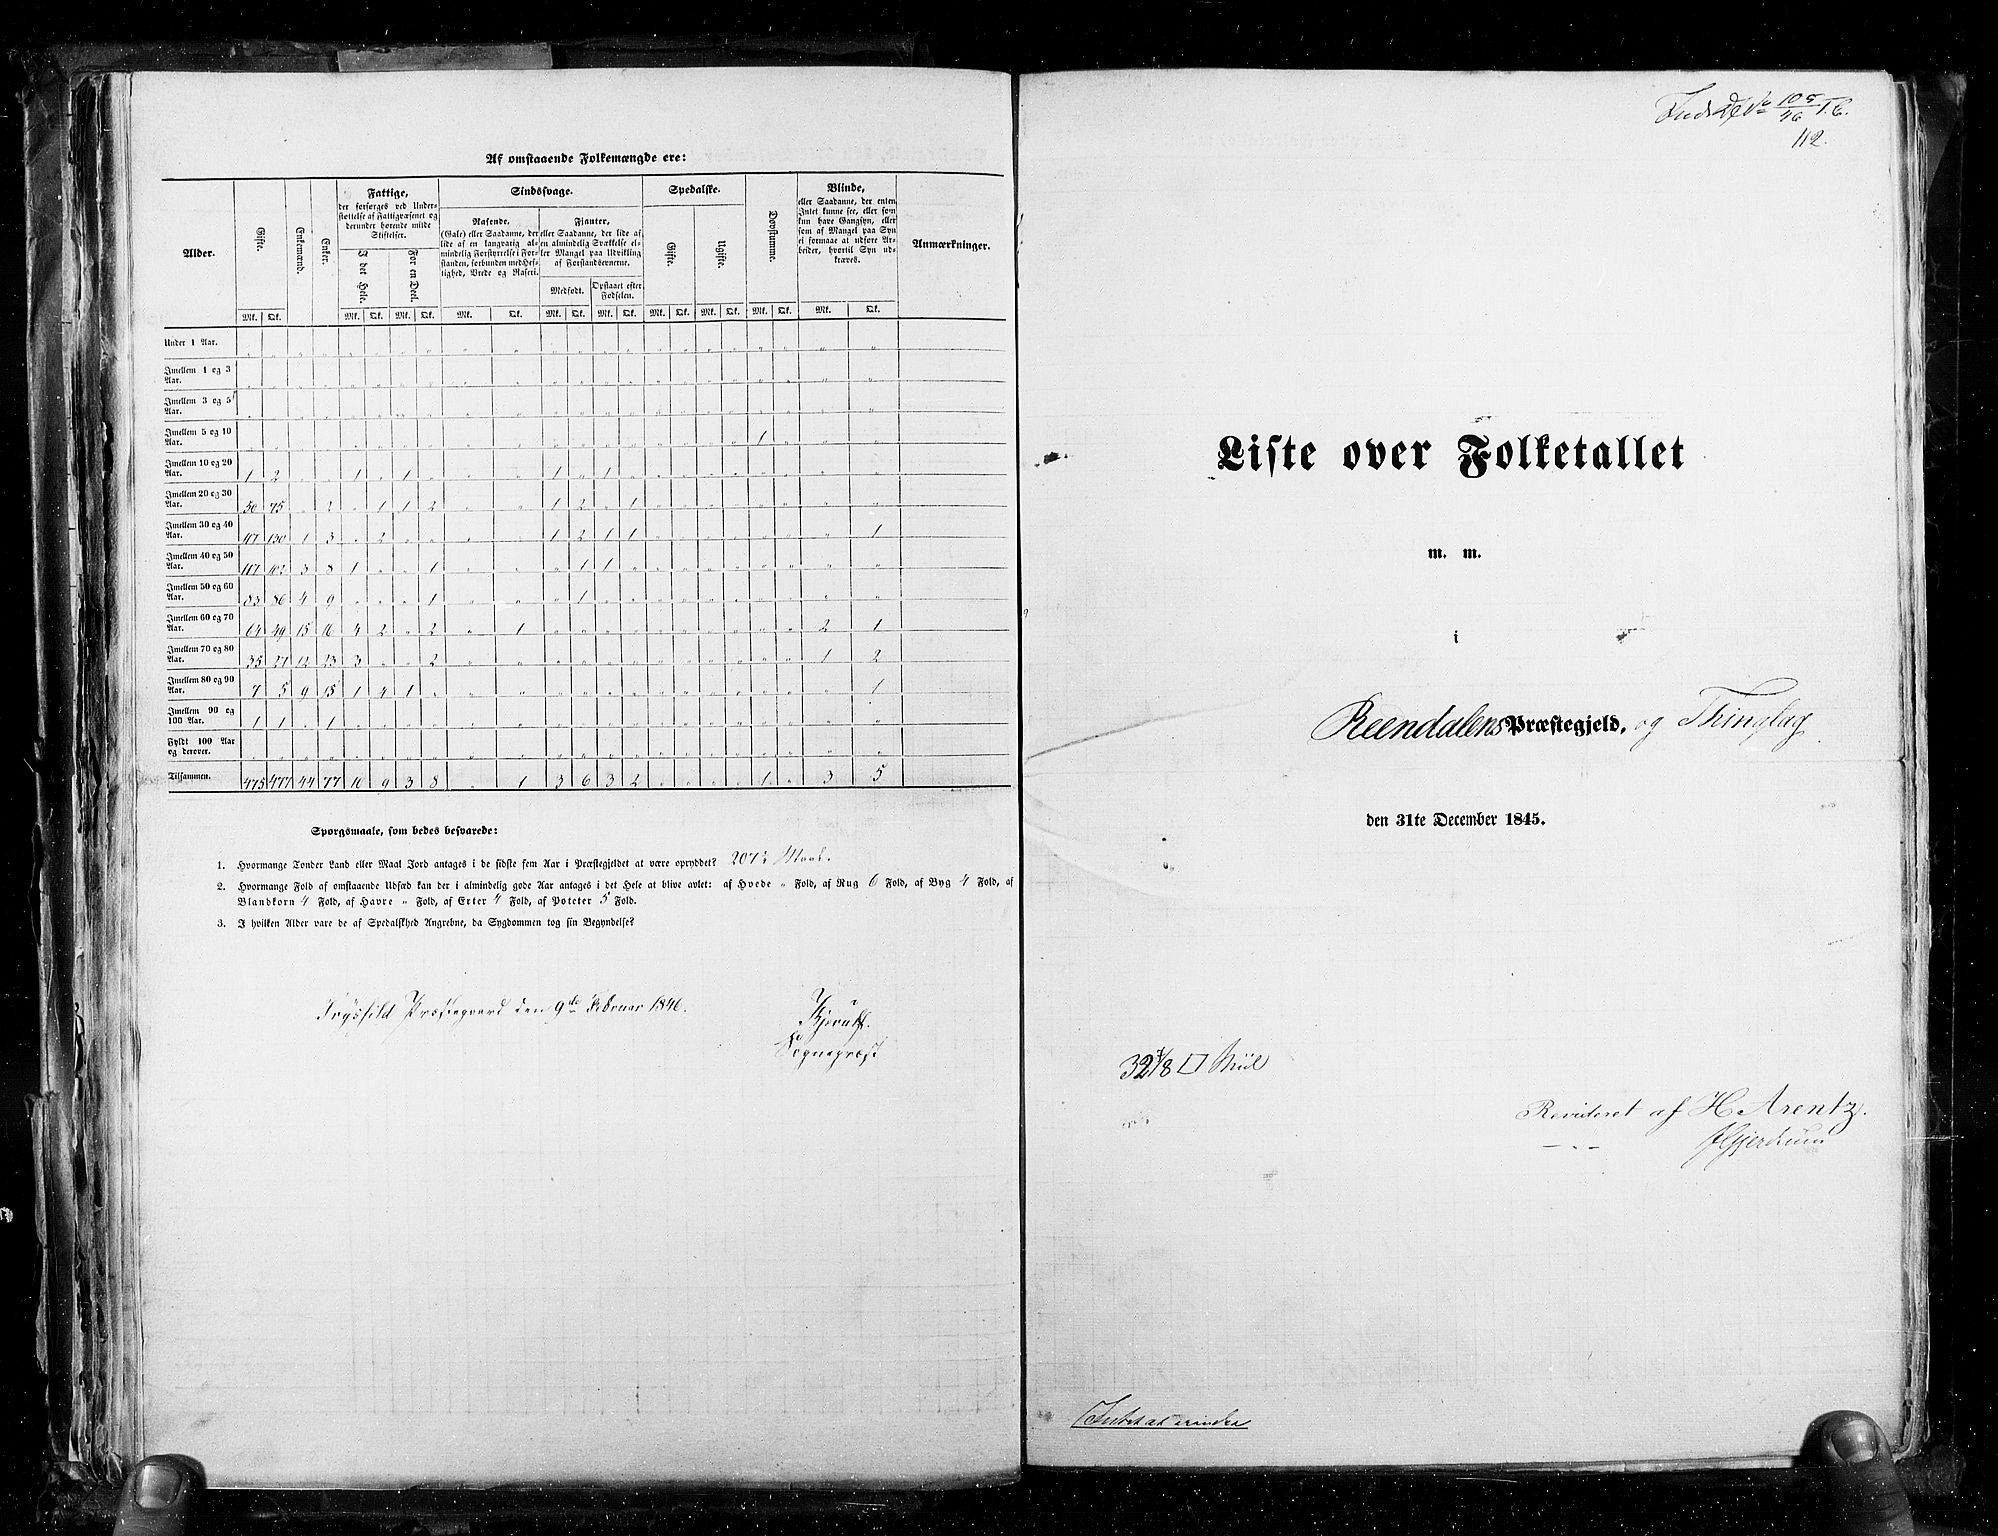 Af omstaaende Folkemængde ere:
Alder. Gifte. Enkemænd. Enker. Fattige, Sindssvage. Spedalske. Døvstumme. Blinde, Anmærkninger.
der forsørges ved Under-
støttelse af Fattigvæsenet og
derunder hørende milde
Stiftelser.
I det Hele. For en Deel.
Rasende,
(Gale) eller Saadanne, der
lide af en langvarig al-
mindelig Forstyrrelse i For-
standen, forbunden med Hef-
tighed, Vrede og Raseri.
Fjanter,
eller Saadanne, der lide af
en almindelig Svækkelse el-
ler Mangel paa Udvikling
af Forstandsevnerne.
Medfødt. Opstaaet efter Fødselen.
Gifte. Ugifte.
eller Saadanne, der enten
Intet kunne see, eller som
kun have Gangsyn, eller
som af Mangel paa Syn
ei formaae at udføre Ar-
beider, hvortil Syn ud-
kræves.
Mk. Qk. Mk. Qk. Mk. Qk. Mk. Qk. Mk. Qk. Mk. Qk. Mk. Qk. Mk. Qk. Mk. Qk. Mk. Qk.
Under 1 Aar. „ „ „ „ „ „ „ „ „ „ „ „ „ „ „ „ „ „ „ „ „ „
Imellem 1 og 3 Aar. „ „ „ „ „ „ „ „ „ „ „ „ „ „ „ „ „ „ „ „ „ „
Imellem 3 og 5 Aar. „ „ „ „ „ „ „ „ „ „ „ „ „ „ „ „ „ „ „ „ „ „
Imellem 5 og 10 Aar. „ „ „ „ „ „ „ „ „ „ „ „ „ „ „ „ „ „ 1 „ „ „
Imellem 10 og 20 Aar. 1 2 „ „ 1 „ 1 „ „ „ 1 „ 1 „ „ „ „ „ „ „ „ „
Imellem 20 og 30 Aar. 50 75 „ 2 „ 1 1 2 „ „ 1 2 „ 1 „ „ „ „ „ „ „ „
Imellem 30 og 40 Aar. 47 130 1 3 „ 2 „ „ „ „ 1 2 1 1 „ „ „ „ „ „ „ 1
Imellem 40 og 50 Aar. 117 102 3 8 1 „ „ 1 „ „ „ 1 1 „ „ „ „ „ „ „ „ „
Imellem 50 og 60 Aar. 83 86 4 9 „ „ „ 1 „ „ „ 1 „ „ „ „ „ „ „ „ „ „
Imellem 60 og 70 Aar. 64 49 15 16 4 2 „ 2 „ 1 „ „ „ „ „ „ „ „ „ „ 2 1
Imellem 70 og 80 Aar. 35 27 12 23 3 „ „ 2 „ „ „ „ „ „ „ „ „ „ „ „ 1 2
Imellem 80 og 90 Aar. 7 5 9 15 1 4 1 „ „ „ „ „ „ „ „ „ „ „ „ „ „ 1
Imellem 90 og 100 Aar. 1 1 „ 1 „ „ „ „ „ „ „ „ „ „ „ „ „ „ „ „ „ „
Fyldt 100 Aar og derover. „ „ „ „ „ „ „ „ „ „ „ „ „ „ „ „ „ „ „ „ „ „
Tilsammen. 475 477 44 77 10 9 3 8 „ 1 3 6 3 2 „ „ „ „ 1 „ 3 5
Spørgsmaale, som bedes besvarede:
1. Hvormange Tønder Land eller Maal Jord antages i de sidste fem Aar i Præstegjeldet at være opryddet? 207½ Maal.
2. Hvormange Fold af omstaaende Udsæd kan der i almindelig gode Aar antages i det Hele at blive avlet: af Hvede „ Fold, af Rug 6 Fold, af Byg 4 Fold, af
Blandkorn 4 Fold, af Havre „ Fold, af Erter 4 Fold, af Poteter 5 Fold.
3. I hvilken Alder vare de af Spedalskhed Angrebne, da Sygdommen tog sin Begyndelse?
Trysild Præstegaard den 9de Februar 1846.
Kjerulf.
Sognepræst
105/46 T. C.
112.
Liste over Folketallet
m. m.
i
Reendalens Præstegjeld, og Thinglag
den 31te December 1845.
□ Miil
Revideret af H Arentz.
— „ — Gjerdrum